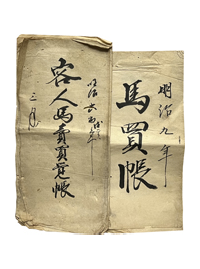 明治九年
馬買帳
明治六癸酉年
客人馬賣買覚帳
三月